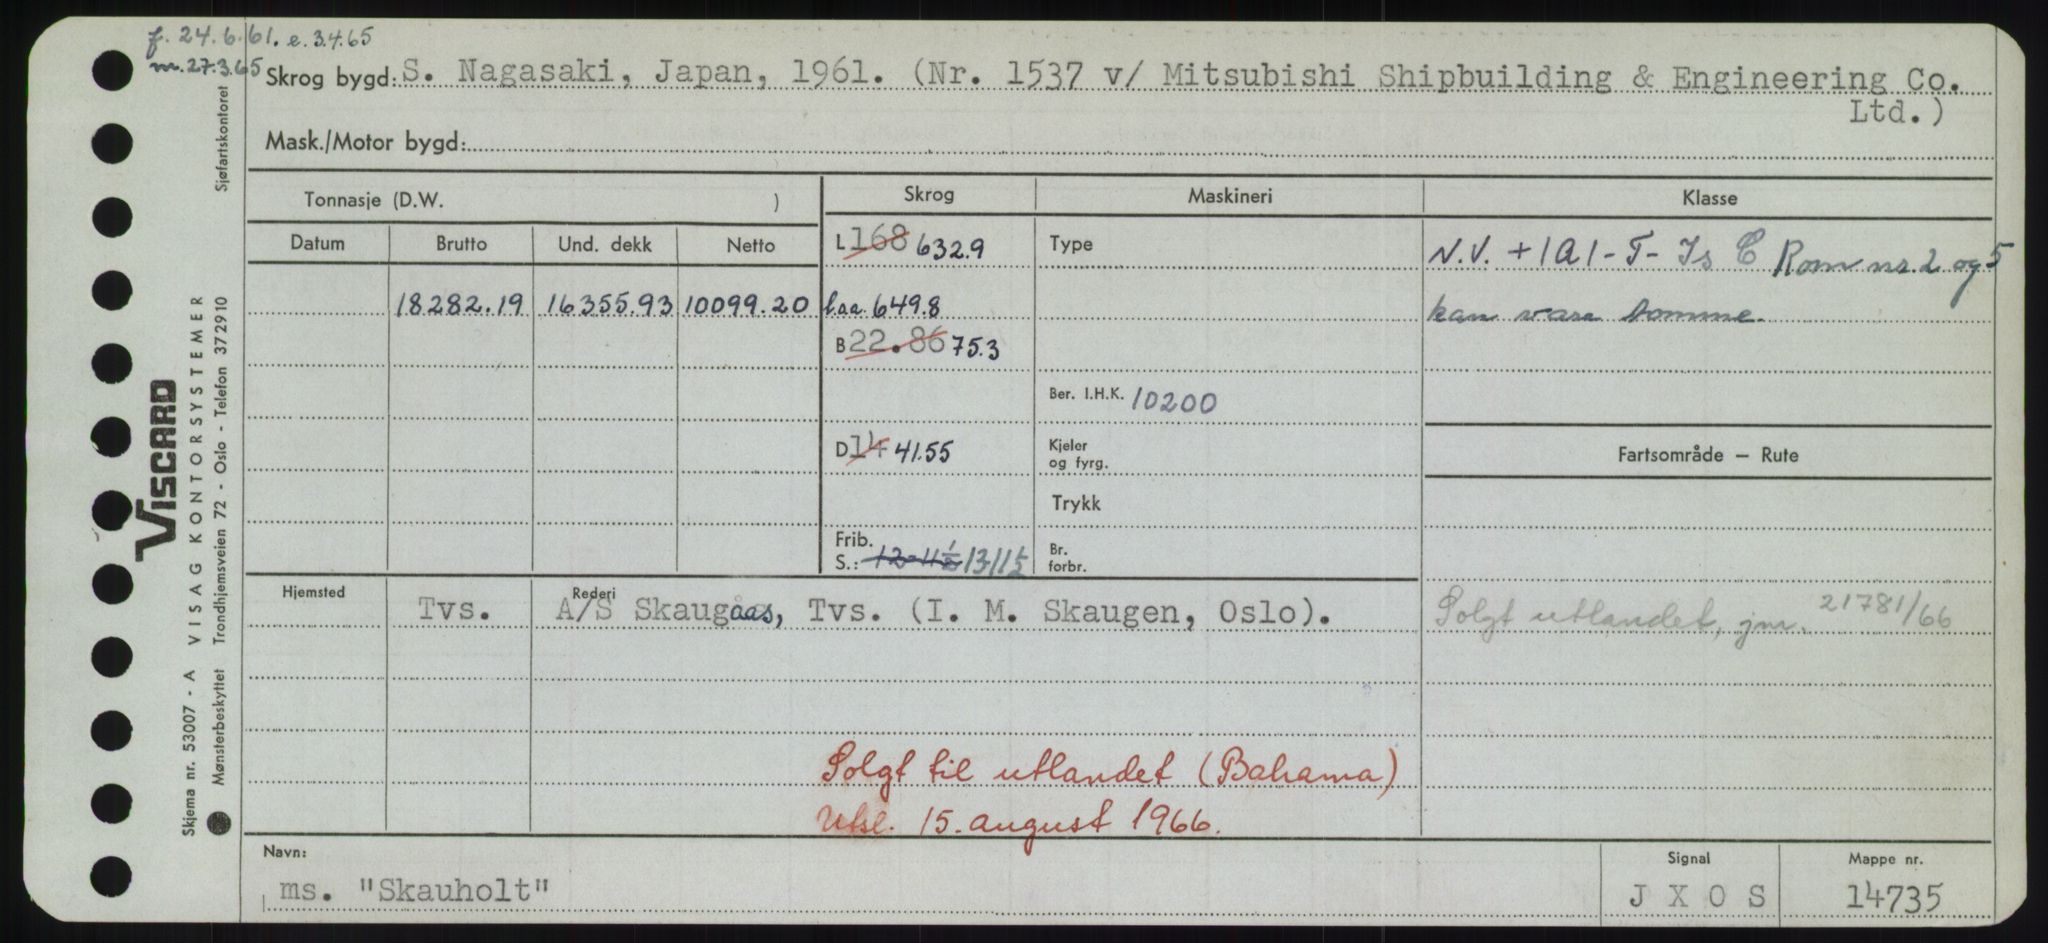 f. 24.6.61. e. 3.4.65
m. 27.3.65
Skrog bygd: S. Nagasaki, Japan, 1961. (Nr. 1537 v/ Mitsubishi Shipbuilding & Engineering Co.
Ltd.)
Mask./Motor bygd:
Tonnasje (D.W. )
Skrog
Maskineri
Klasse
Datum
Brutto
Und. dekk
Netto
L 168 632.9
Type
N.V. + 1A1 - T - Is C Rom nr. 2 og 5
18282.19 16355.93 10099.20
l.aa. 649.8
kan være tomme.
B 22.86 75.3
Ber. I.H.K. 10200
D 14 41.55
Kjeler
og fyrg.
Fartsområde — Rute
Trykk
Frib.
S.: 12-11½ 13/11½
Br.
forbr.
Hjemsted
Rederi
Tvs.
A/S Skaugaas, Tvs. (I. M. Skaugen, Oslo).
Solgt utlandet, jnr. 21781/66
Solgt til utlandet (Bahama)
Utsl. 15. august 1966.
Navn:
ms. "Skauholt"
Signal
J X O S
Mappe nr.
14735
VISCARD
Skjema nr. 53007 - A VISAG KONTORSYSTEMER
Mønsterbeskyttet Trondhjemsveien 72 - Oslo - Telefon 372910 Sjøfartskontoret